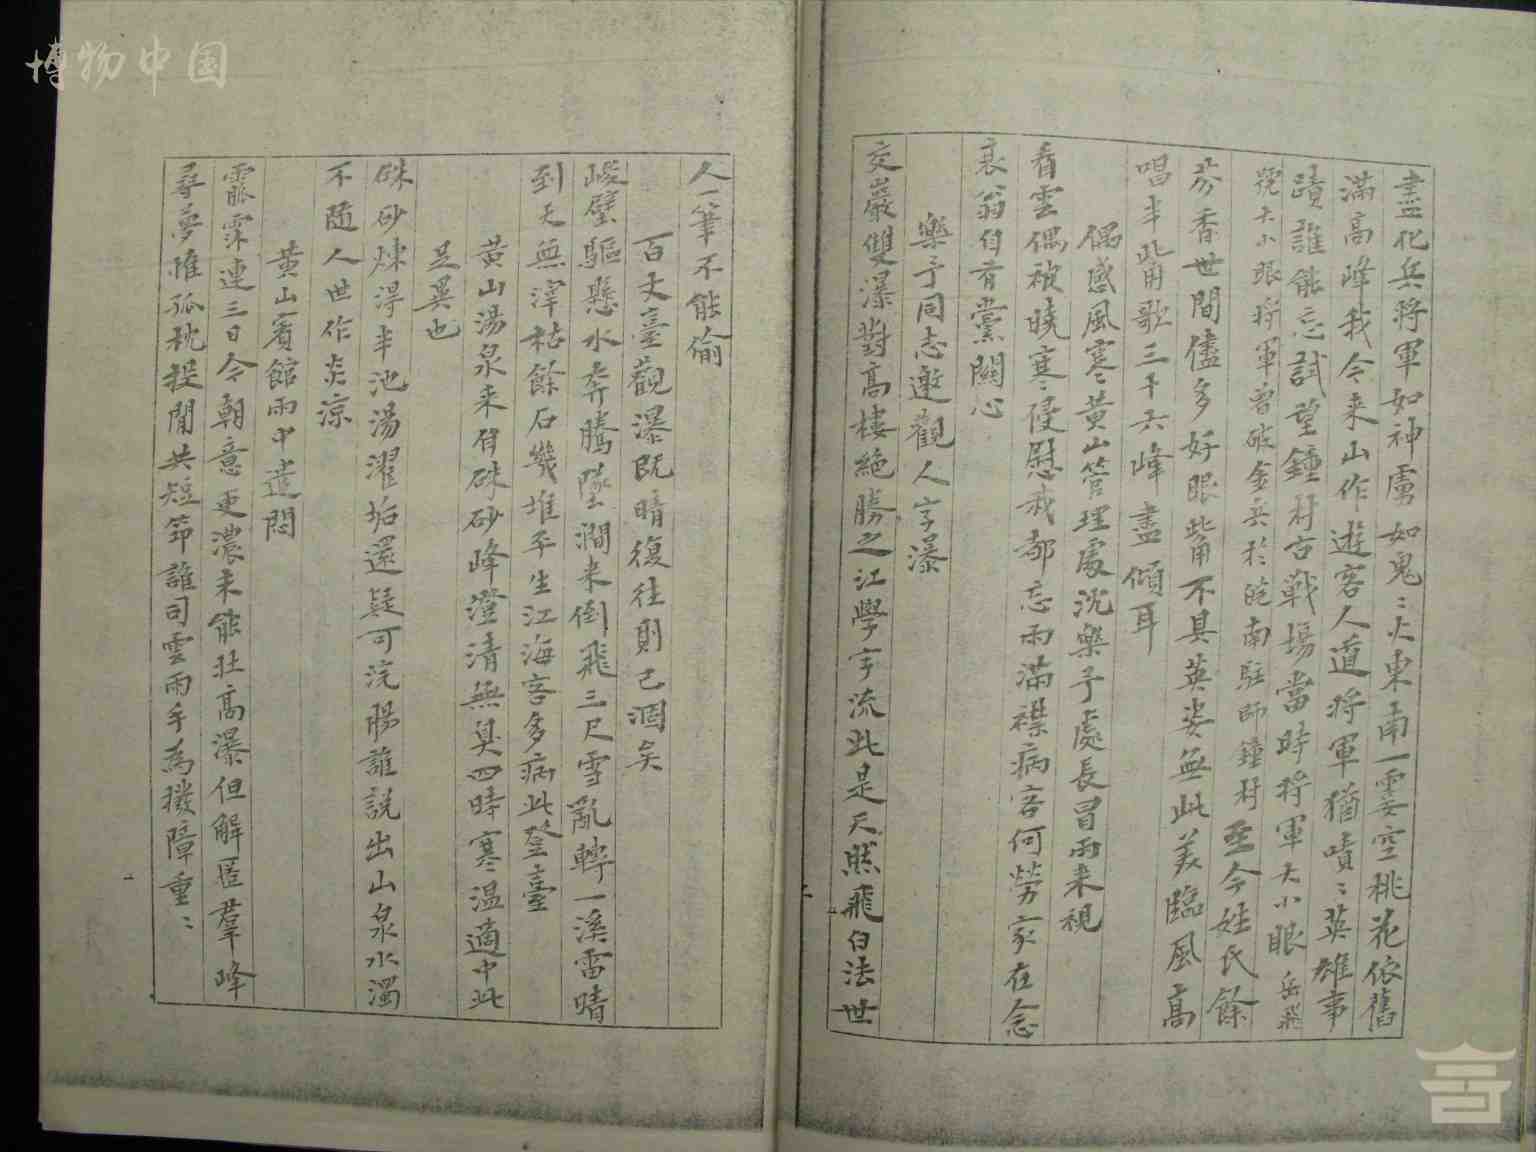 博物中国
盡化兵將軍如神虜如鬼〻火東南一霎空桃花依舊
滿高峰我今来山作遊客人道將軍猶嘖〻英雄事
蹟誰能忘試望鐘村古戰場當時將軍大小眼岳飛
號大小眼將軍曾破金兵於皖南駐師鐘村至今姓氏餘
芬香世間儘多好眼眥不具英姿無此美臨風高
唱半山歌三十六峰盡傾耳
偶感風寒黃山管理處沈樂予處長冒雨来視
看雲偶被曉寒侵慰我都忘雨滿襟病客何勞家在念
衰翁自有黨關心
樂予同志邀觀人字瀑
交巖雙瀑對高樓絕勝之江學字流此是天然飛白法世
人一筆不能偷
百丈臺觀瀑既晴復往則已涸矣
巉壁驅懸水奔騰墜澗来倒飛三尺雪亂轉一溪雷晴
到天無滓枯餘石幾堆平生江海客多病此登臺
黃山湯泉来自硃砂峰澄清無臭四時寒温適中此
足異也
硃砂煉得半池湯濯垢還疑可浣腸誰說出山泉水濁
不隨人世作炎涼
黃山賓館雨中遣悶
霢霂連三日今朝意更濃未能壯高瀑但解匿羣峰
尋夢惟孤枕投閒共短笻誰司雲雨手為撥障重〻